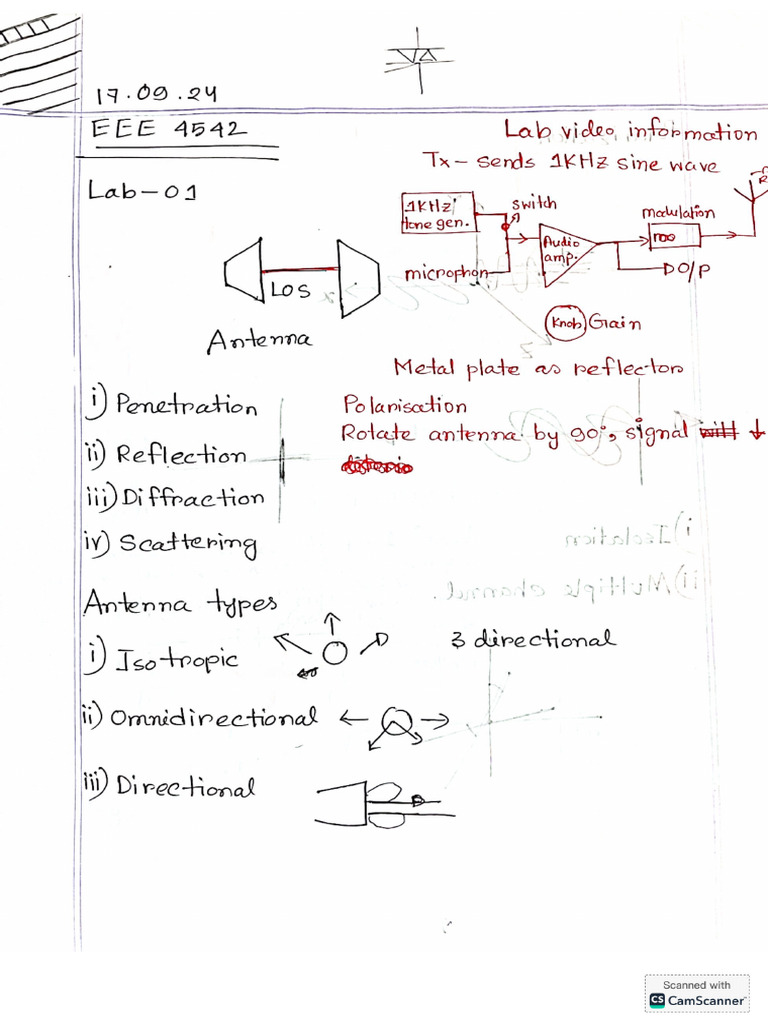 17.09.24
EEE 4542
Lab-01
Lab video information
Tx - sends 1KHz sine wave
1KHz
tone gen.
switch
microphon
Audio
amp.
modulation
DO/P
Knob Gain
LOS
Antenna
Metal plate as reflector
i) Penetration
ii) Reflection
iii) Diffraction
iv) Scattering
Polarisation
Rotate antenna by 90°, signal ↓
Antenna types
i) Isotropic
3 directional
ii) Omnidirectional
iii) Directional
i) Isolation
ii) Multiple channel.
Scanned with
CS CamScanner